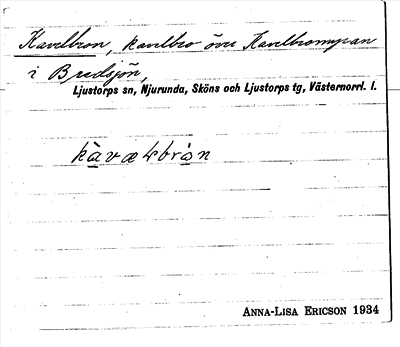 Kavelbron, kavelbro över Kavelbromyran
i Bredsjön,
Ljustorps sn, Njurunda, Sköns och Ljustorps tg, Västernorrl. l.
kàvæɫbrån
ANNA-LISA ERICSON 1934